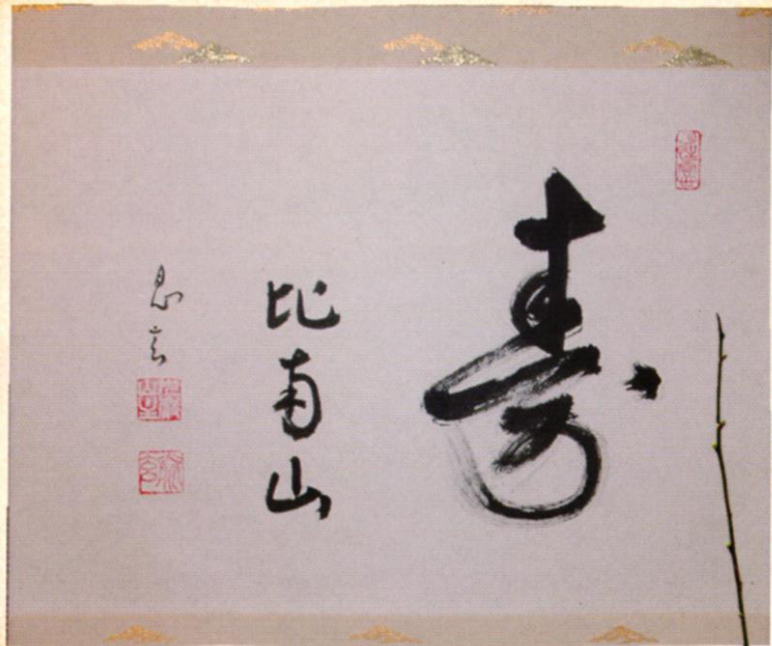 寿
比南山